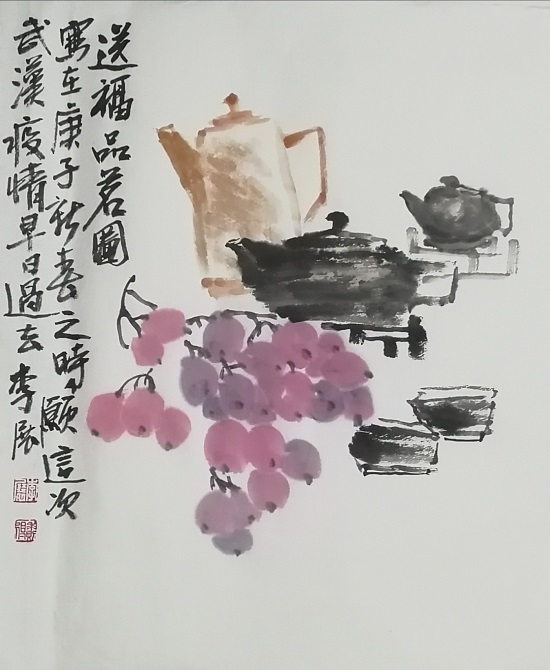 送福品茗圖
寫在庚子新春之時願這次
武漢疫情早日過去李展